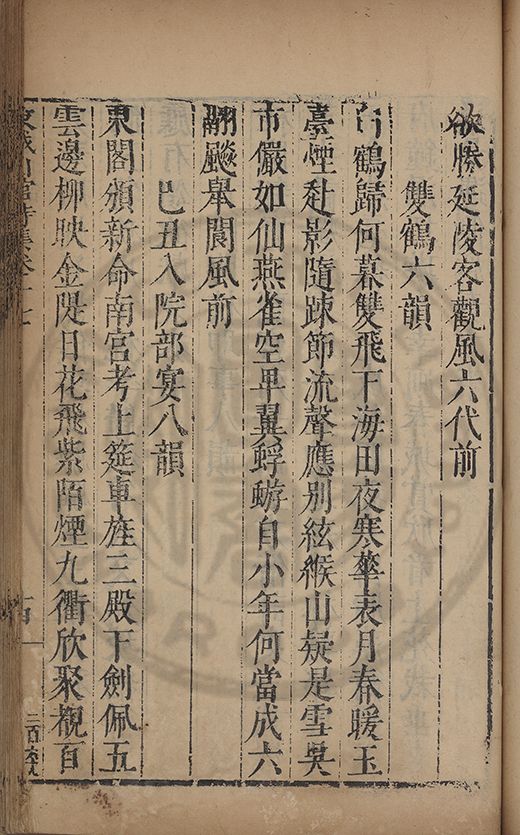 欲勝延陵客觀風六代前
雙鶴六韻
鶴歸何暮雙飛下海田夜寒華表月春暖玉
臺煙赴影隨踈節流聲應別絃緱山疑是雪吳
市儼如仙燕雀空卑翼蜉蝣自小年何當成六
翮飈舉閬風前
巳丑入院部宴八韻
東閣頒新命南宮考上筵車旌三殿下劍佩五
雲邊柳映金隄日花飛紫陌煙九衢欣聚覩百
山官詩集卷十七